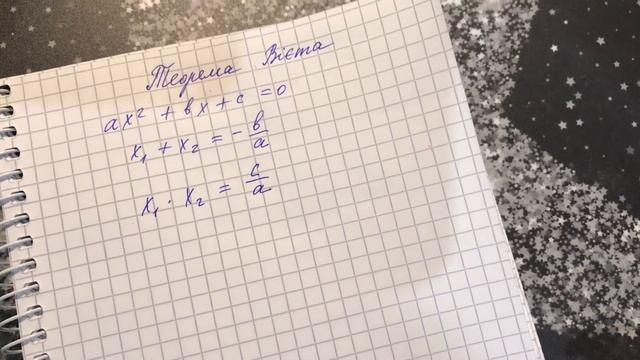 Теорема Вієта
ax² + bx + c = 0
x₁ + x₂ = - b/a
x₁ · x₂ = c/a